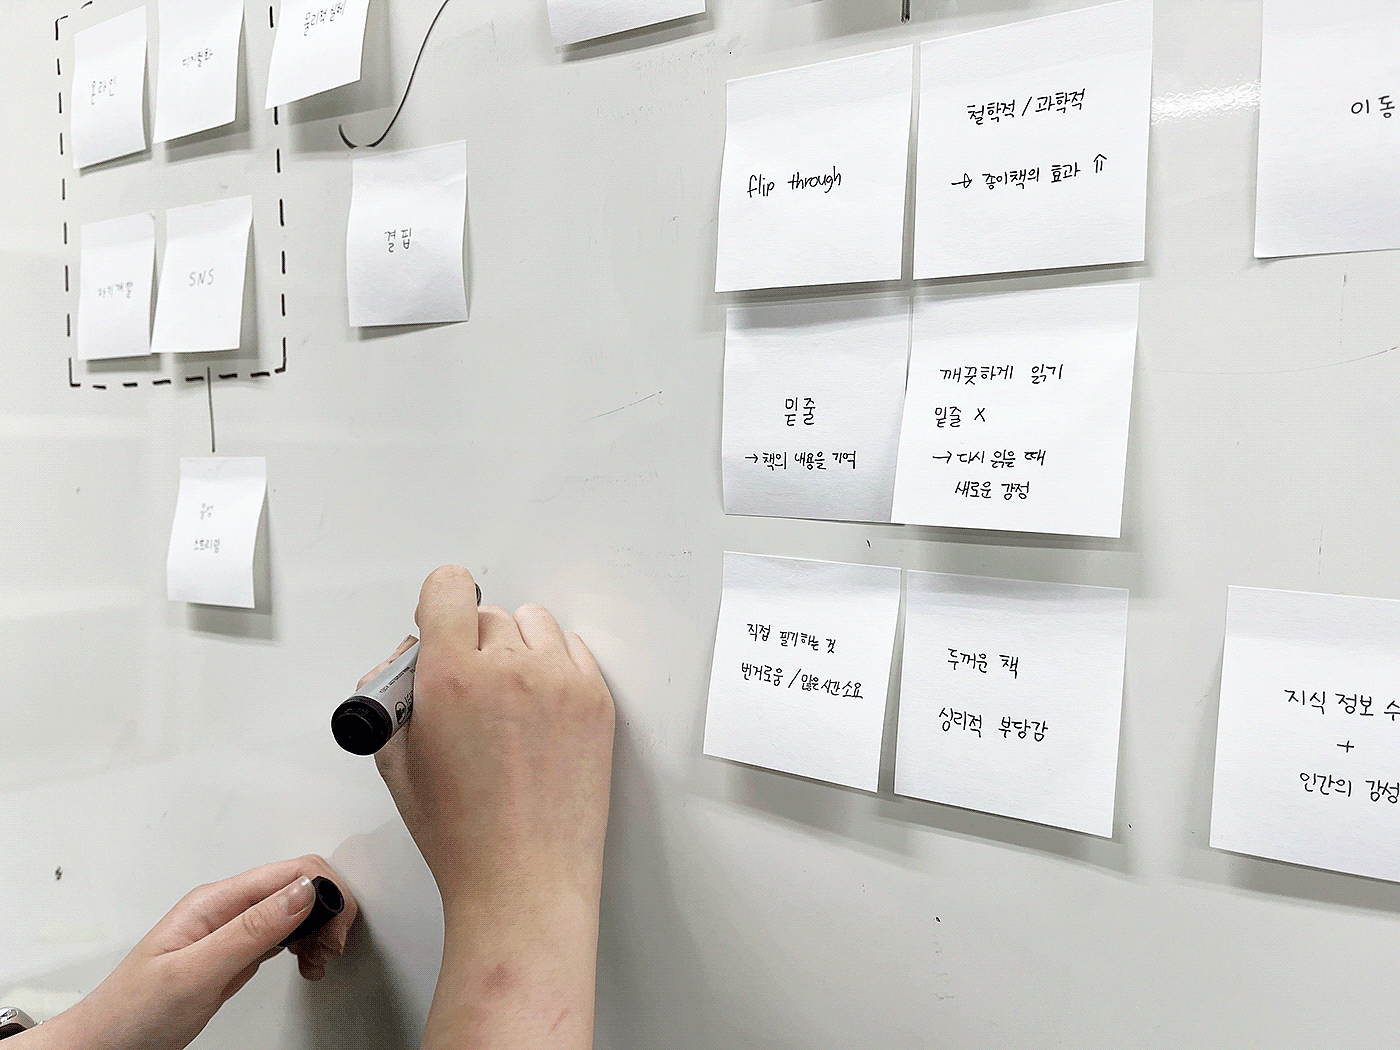 온라인
디지털화
물리적 실체
자기개발
SNS
결핍
음성
스트리밍
flip through
철학적 / 과학적
→ 종이책의 효과 ⇑
밑줄
→ 책의 내용을 기억
깨끗하게 읽기
밑줄 X
→ 다시 읽을 때
새로운 감정
직접 필기하는 것
번거로움 / 많은 시간 소요
두꺼운 책
심리적 부담감
이동
지식 정보 수
+
인간의 감성